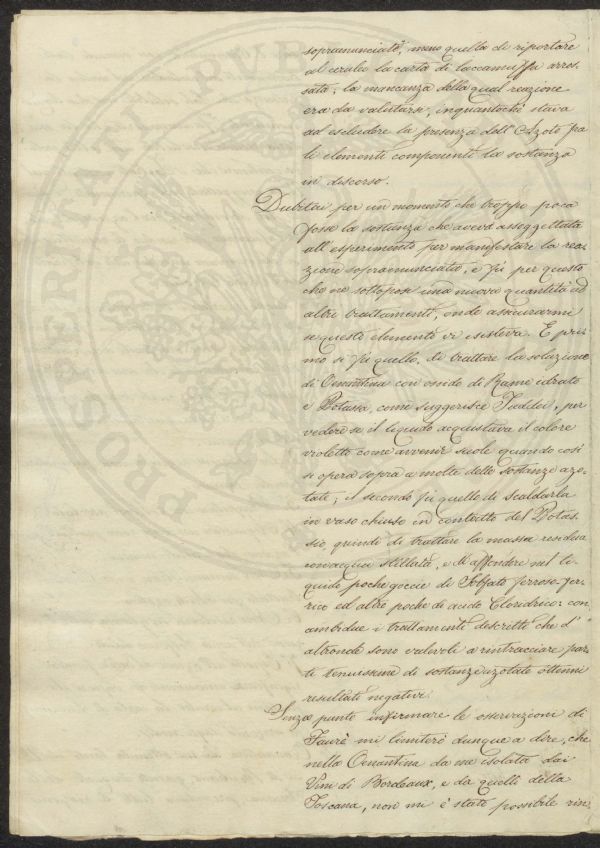 sopraenunciate, meno quella di riportare
al ceruleo la carta di laccamuffa arros-
sata; la mancanza della qual reazione
era da valutarsi, inquantochè stava
ad escludere la presenza dell'Azoto fra
li elementi componenti la sostanza
in discorso.
Dubitai per un momento che troppo poca
fosse la sostanza che aveva assoggettata
all'esperimento per manifestare la rea-
zione sopraenunciata, e fù per questo
che ne sottoposi una nuova quantità ad
altri trattamenti, onde assicurarmi
se questo elemento vi esisteva. E pri-
mo si fù quello, di trattare la soluzione
di Oenantina con ossido di Rame idrato
e Potassa, come suggerisce Taddei, per
vedere se il liquido acquistava il colore
violetto come avvenir suole quando così
si opera sopra a molte delle sostanze azo-
tate; il secondo fù quello di scaldarla
in vaso chiuso in contatto del Potas-
sio, quindi di trattare la massa residua
con acqua stillata, e di affondere nel li-
quido poche goccie di Solfato ferroso-fer-
rico ed altre poche di acido Cloridrico: con
ambidue i trattamenti descritti che d'
altronde sono valevoli a rintracciare par-
ti tenuissime di sostanze azotate ottenni
resultati negativi.
Senza punto infirmare le osservazioni di
Faurè mi limiterò dunque a dire, che
nella Oenantina da me isolata dai
Vini di Bordeaux, e da quelli della
Toscana, non mi è stato possibile rin-
PROPERTY PVBLI